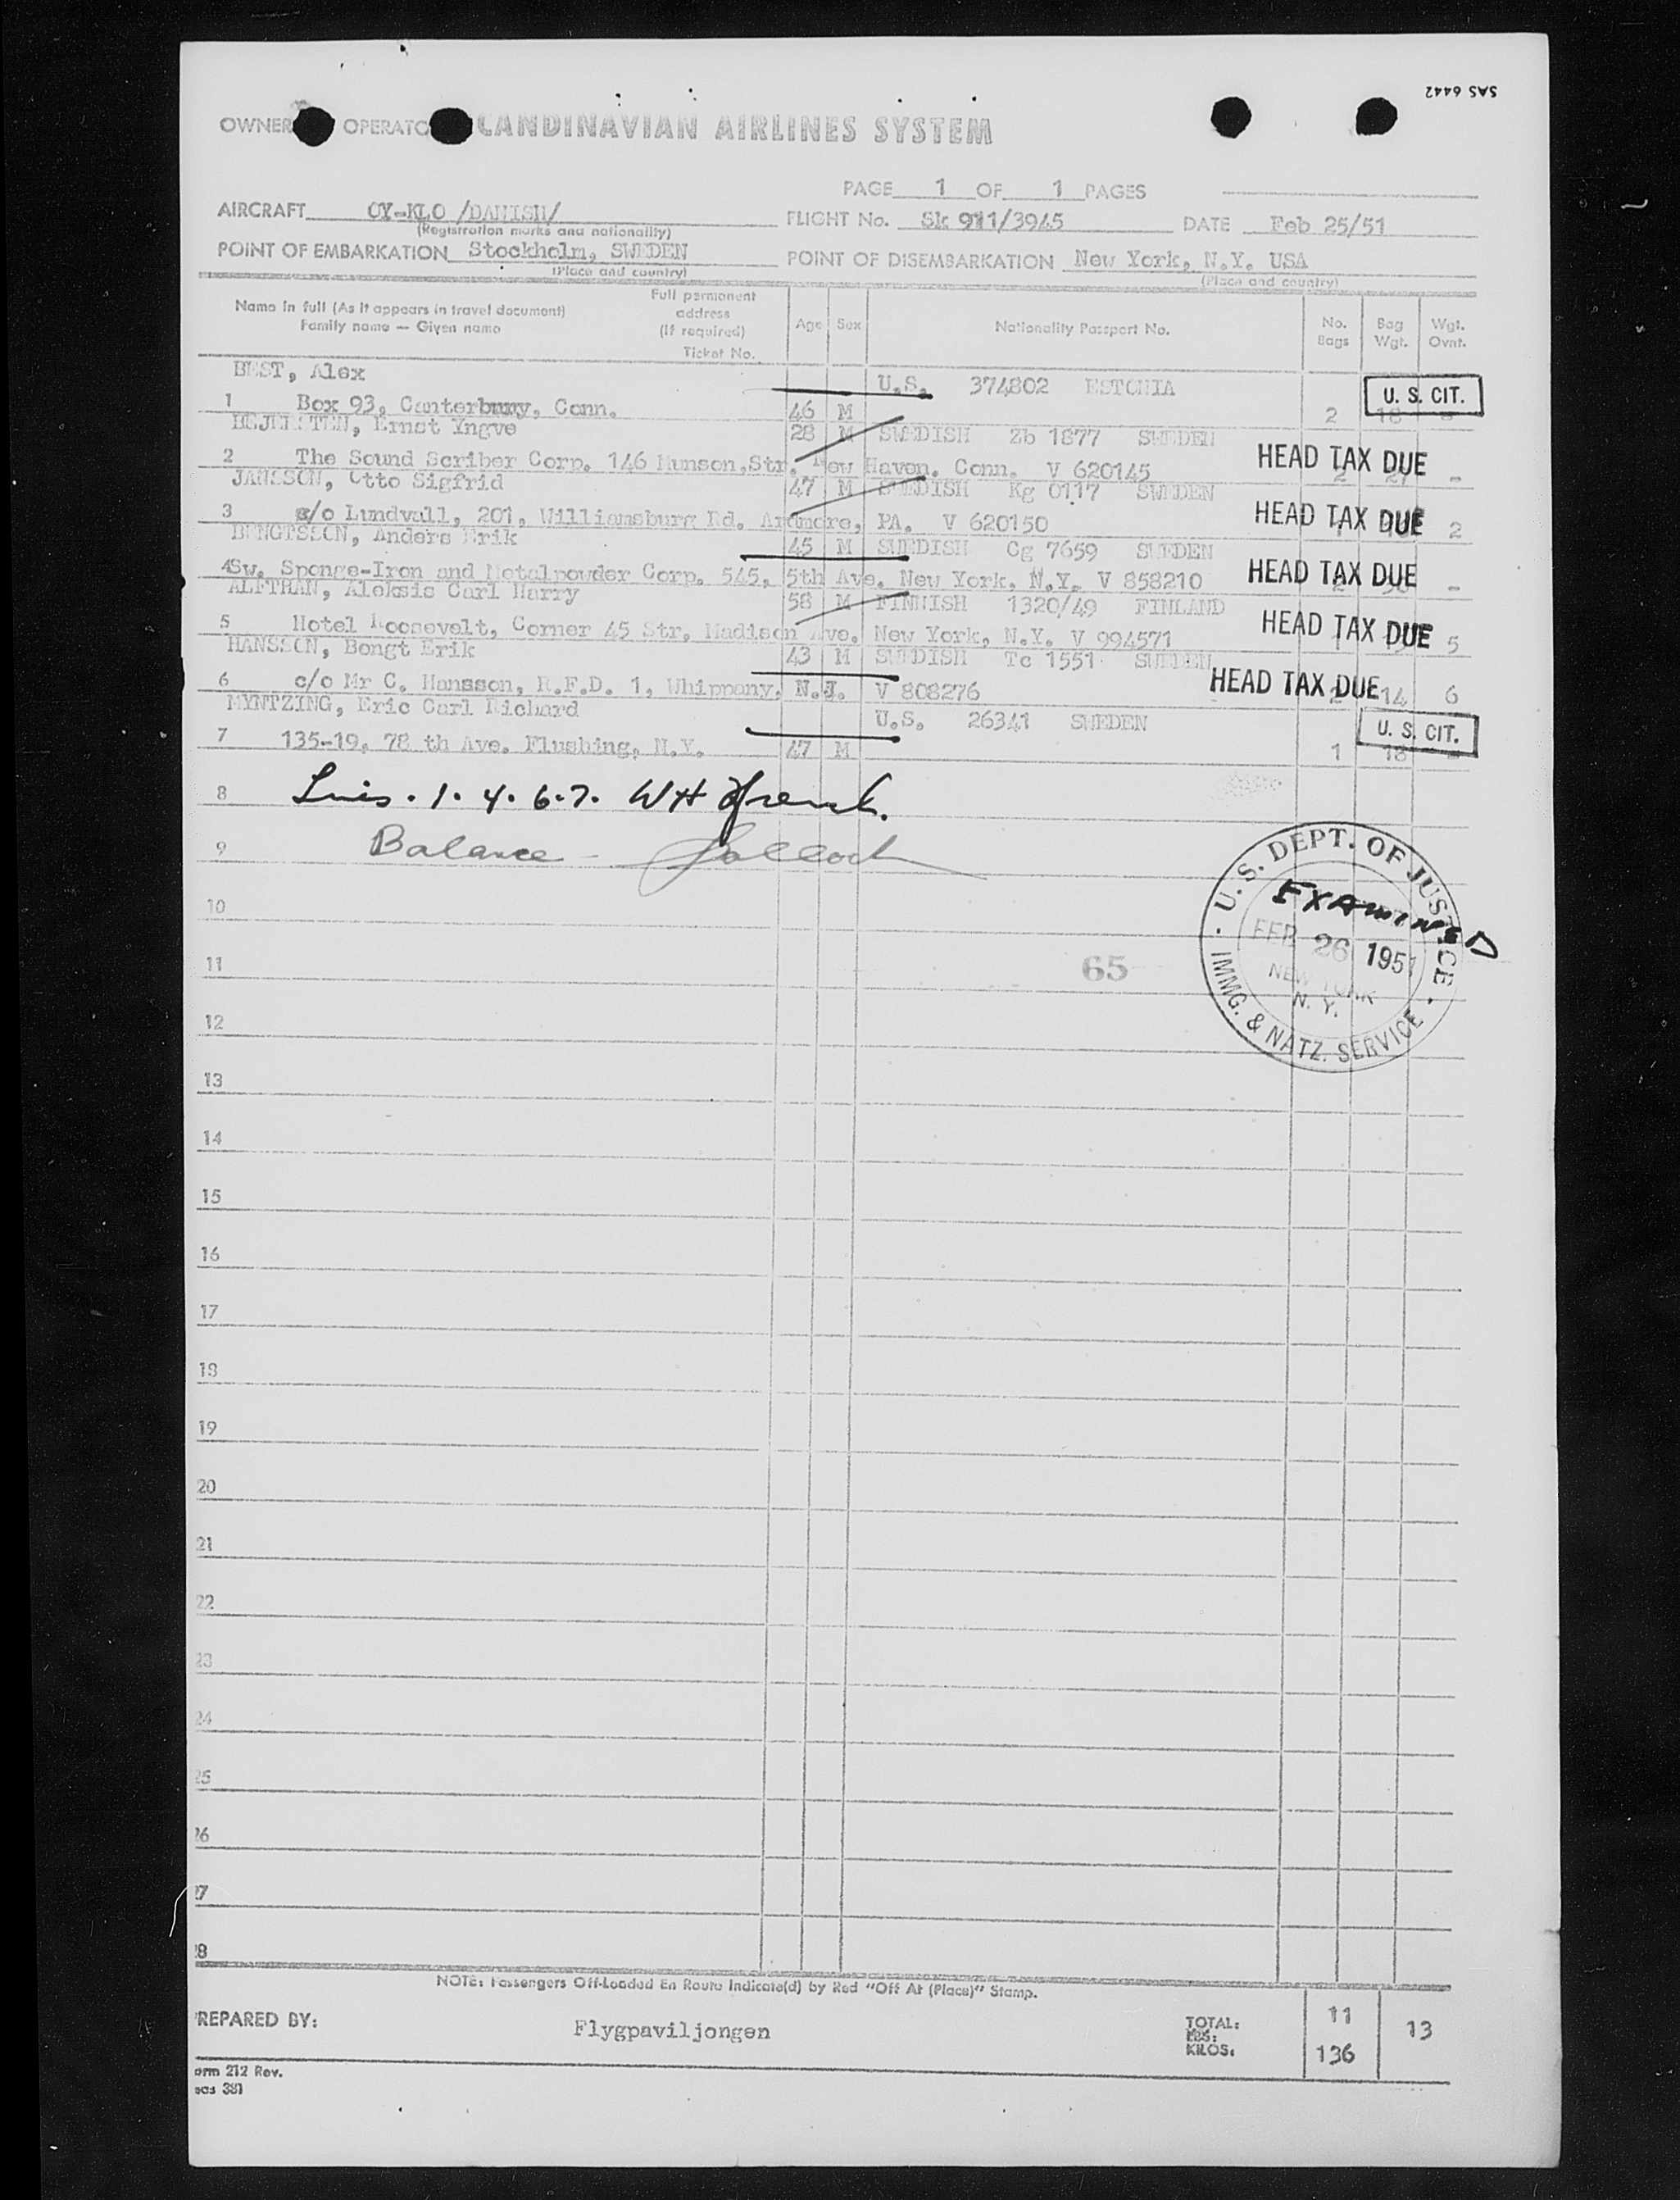 SAS 6442
OWNER OPERATO CANDINAVIAN AIRLINES SYSTEM
PAGE 1 OF 1 PAGES
AIRCRAFT OY-KLO /DANISH/ FLIGHT No. Sk 911/3945 DATE Feb 25/51
(Registration marks and nationality)
POINT OF EMBARKATION Stockholm, SWEDEN POINT OF DISEMBARKATION New York, N.Y. USA
(Place and country) (Place and country)
Name in full (As it appears in travel document) Family name — Given name
Full permanent address (If required) Ticket No.
Age Sex Nationality Passport No. No. Bags Bag Wgt. Wgt. Ovnt.
BEST, Alex U.S. 374802 ESTONIA U. S. CIT.
1 Box 93, Canterbury, Conn. 46 M 2 18 -
Ernst Yngve 28 M SWEDISH Zb 1877 SWEDEN HEAD TAX DUE
2 The Sound Scriber Corp. 146 Munson,Str. New Haven. Conn. V 620145 2 21 -
JANSSON, Otto Sigfrid 47 M SWEDISH Kg 0117 SWEDEN HEAD TAX DUE
3 c/o Lundvall, 201, Williamsburg Rd. Ardmore, PA. V 620150 1 2
BENGTSSON, Anders Erik 45 M SWEDISH Cg 7659 SWEDEN HEAD TAX DUE
4 Sw. Sponge-Iron and Metalpowder Corp. 545, 5th Ave. New York, N.Y. V 858210 2 -
ALFTHAN, Aleksis Carl Harry 58 M FINNISH 1320/49 FINLAND HEAD TAX DUE
5 Hotel Roosevelt, Corner 45 Str. Madison Ave. New York, N.Y. V 994571 1 5
HANSSON, Bengt Erik 43 M SWEDISH Tc 1551 SWEDEN HEAD TAX DUE
6 c/o Mr C. Hansson, R.F.D. 1, Whippany, N.J. V 808276 2 14 6
MYNTZING, Eric Carl Richard U.S. 26341 SWEDEN U. S. CIT.
7 135-19, 78 th Ave. Flushing, N.Y. 47 M 1 18 -
8 1. 4. 6. 7. WH
9 Balance -
U. S. DEPT. OF JUSTICE
EXAMINED
FEB 26 1951
NEW YORK
N. Y.
IMMG. & NATZ. SERVICE
10
11 65
12
13
14
15
16
17
18
19
20
21
22
23
24
25
26
27
28
NOTE: Passengers Off-Loaded En Route Indicate(d) by Red "Off At (Place)" Stamp.
REPARED BY: Flygpaviljongen TOTAL: 11 13
LBS:
KILOS: 136
orm 212 Rev.
sas 381